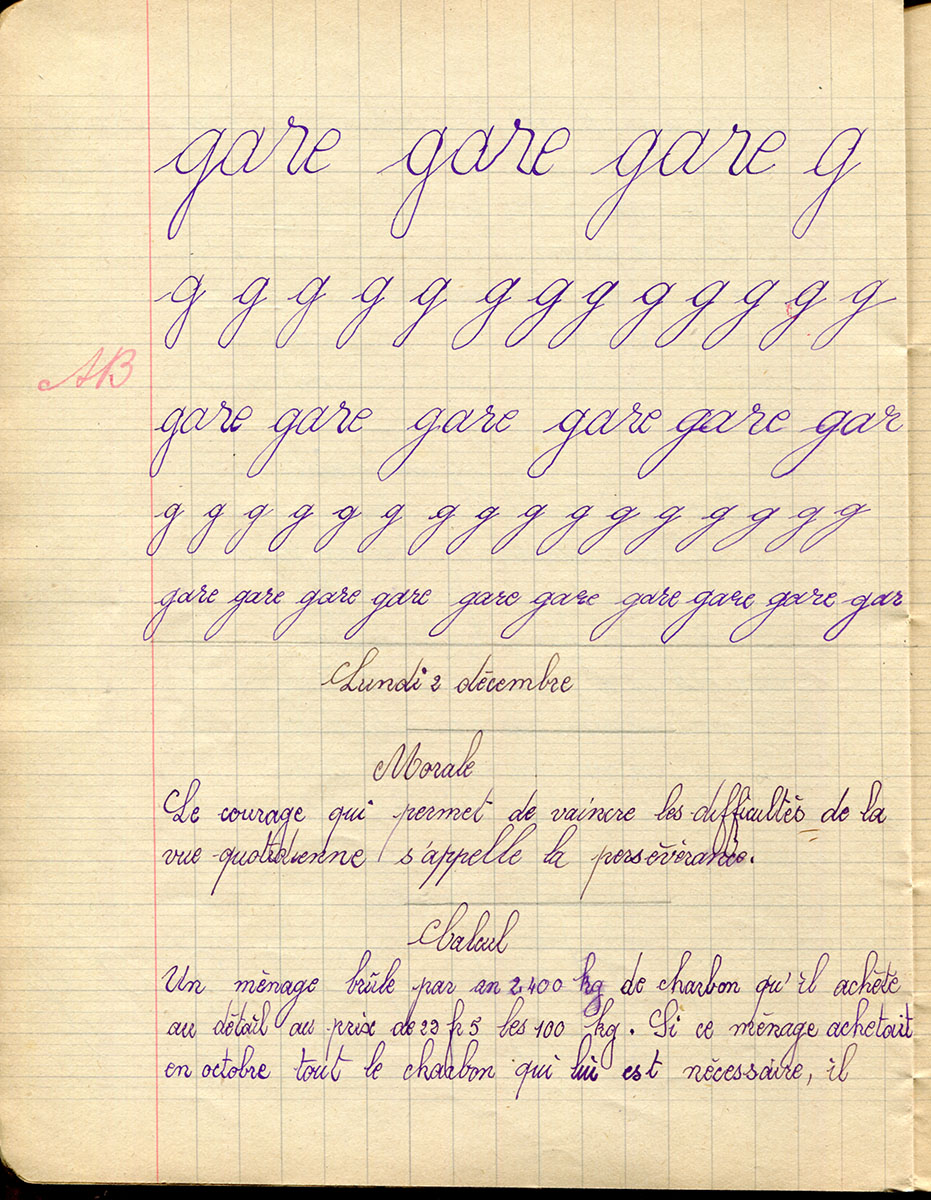 gare gare gare g
g g g g g g g g g g g g g g
AB
gare gare gare gare gare gar
g g g g g g g g g g g g g g g g
gare gare gare gare gare gare gare gare gare gar
Lundi 2 décembre
Morale
Le courage qui permet de vaincre les difficultés de la
vue quotidienne s'appelle la persévérance.
Calcul
Un ménage brûle par an 2400 kg de charbon qu'il achète
au détail au prix de 23 fr 5 les 100 kg. Si ce ménage achetait
en octobre tout le charbon qui lui est nécessaire, il